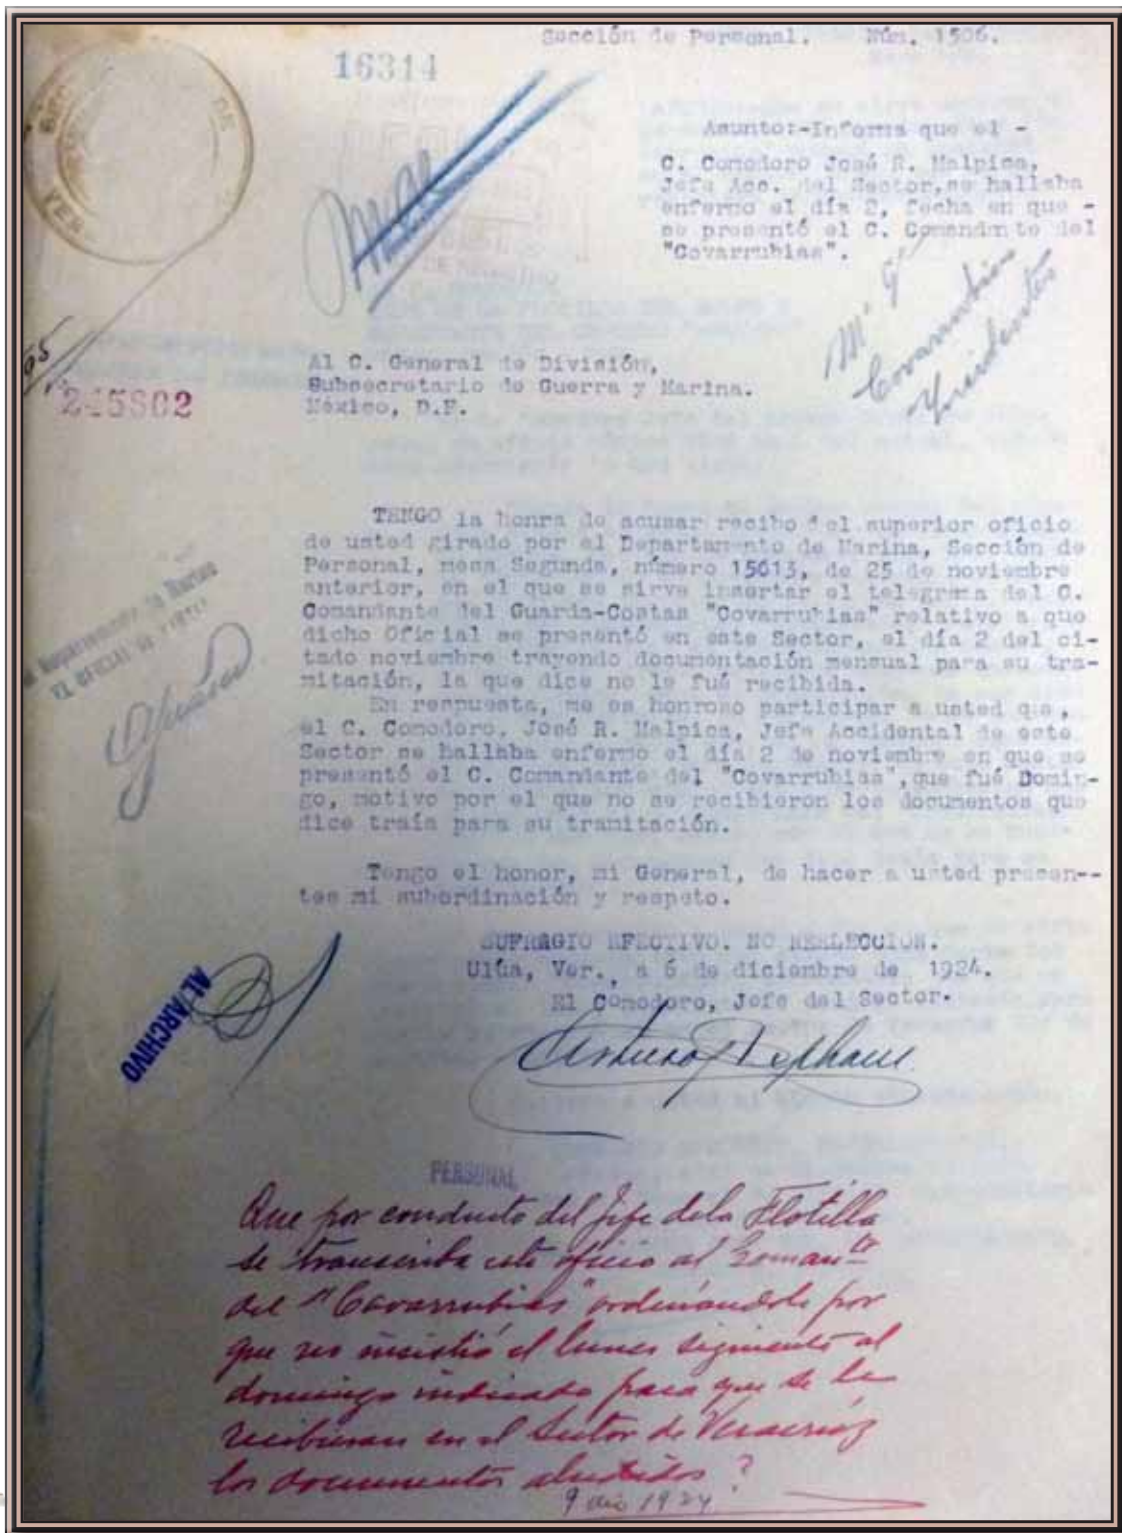 Sección de Personal. Núm. 1506.
16314
SEC DE
VER
Asunto:-Informa que el -
C. Comodoro José R. Malpica,
Jefe Acc. del Sector,se hallaba
enfermo el día 2, fecha en que -
se presentó el C. Comandante del
"Covarrubias".
Covarrubias
Al C. General de División,
Subsecretario de Guerra y Marina.
México, D.F.
245802
TENGO la honra de acusar recibo del superior oficio
de usted girado por el Departamento de Marina, Sección de
Personal, mesa Segunda, número 15613, de 25 de noviembre
anterior, en el que se sirve insertar el telegrama del C.
Comandante del Guarda-Costas "Covarrubias" relativo a que
dicho Oficial se presentó en este Sector, el día 2 del ci-
tado noviembre trayendo documentación mensual para su tra-
mitación, la que dice no le fué recibida.
En respuesta, me es honroso participar a usted que,
el C. Comodoro, José R. Malpica, Jefe Accidental de este
Sector se hallaba enfermo el día 2 de noviembre en que se
presentó el C. Comandante del "Covarrubias",que fué Domin-
go, motivo por el que no se recibieron los documentos que
dice traía para su tramitación.
Departamento de Marina
EL OFICIAL DE
Tengo el honor, mi General, de hacer a usted presen--
tes mi subordinación y respeto.
SUFRAGIO EFECTIVO. NO REELECCION.
Ulúa, Ver., a 6 de diciembre de 1924.
El Comodoro, Jefe del Sector.
AL ARCHIVO
PERSONAL
Que por conducto del Jefe dela Flotilla
se transcriba este oficio al Coman<sup>te</sup>
del "Covarrubias" ordenándole por
que no insistió el lunes siguiente al
domingo indicado para que se le
recibieran en el Sector de Veracruz
los documentos aludidos?
9 dic 1924